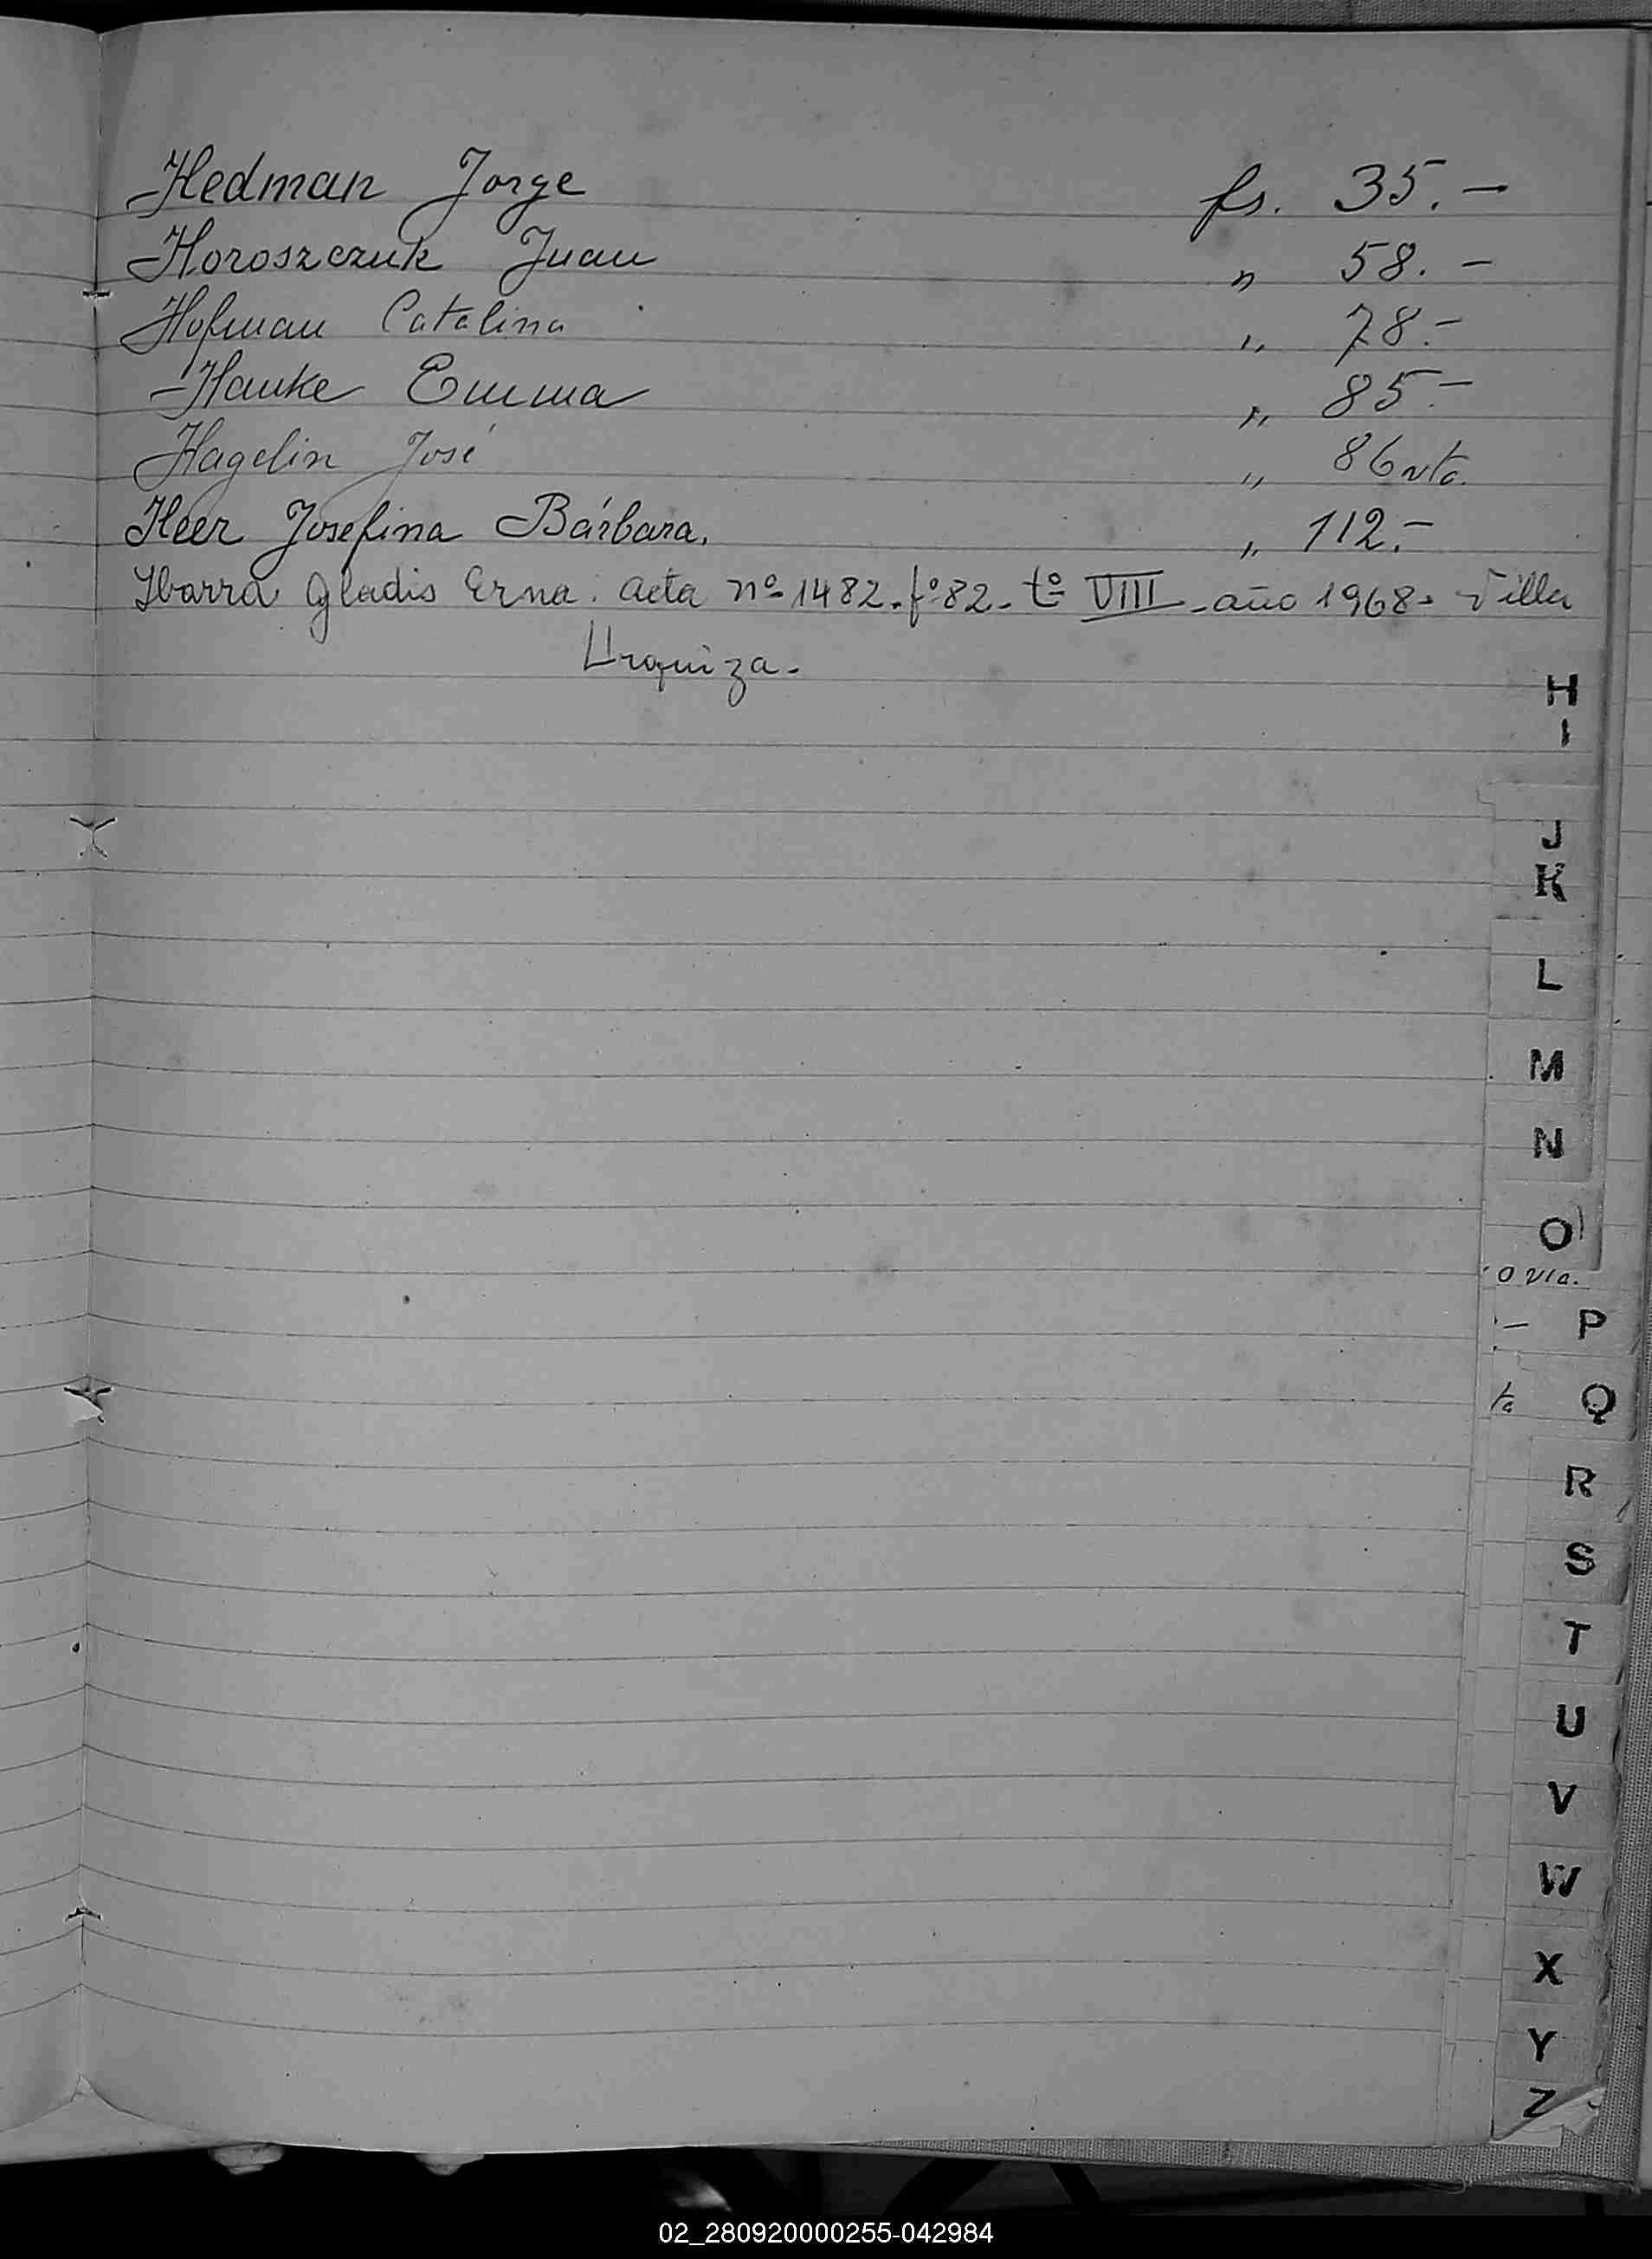 Hedman Jorge fs. 35.-
Horoszczuk Juan " 58.-
Hofman Catalina " 78.-
Hauke Emma " 85.-
Hagelin José " 86 vta.
Heer Josefina Bárbara. " 112.-
Ibarra Gladis Erna. acta nº 1482. fº 82- tº VIII - año 1968- Villa
Urquiza.
H
I
J
K
L
M
N
O
0 vta.
P
ta Q
R
S
T
U
V
W
X
Y
Z
02_280920000255-042984